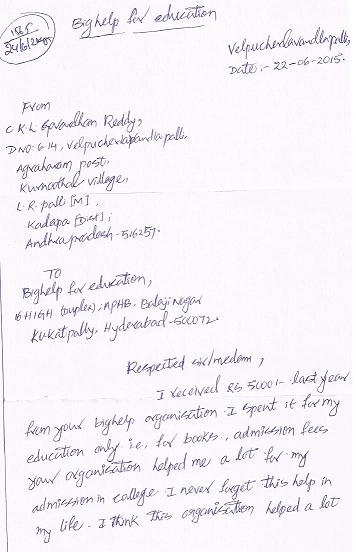 Bighelp for education
24/6/2015
Velpucherlavandlapalli,
Date :- 22-06-2015.
From
C.K.L. Govardhan Reddy,
D NO: 6-14, Velpucherlapandlapalli,
Agraharam post,
Kurnoothal village,
L.R. palli [M],
Kadapa [Dist];
Andhrapradesh-516257.
TO
Bighelp for education,
16 HIGH (Duplex), APHB, Balaji Nagar
Kukatpally, Hyderabad-500072.
Respected sir/medem,
I received RS 5000/- last year
from your bighelp organisation. I spent it for my
education only i.e, for books, admission fees
your organisation helped me a lot for my
admission in college. I never forget this help in
my life. I think this organisation helped a lot